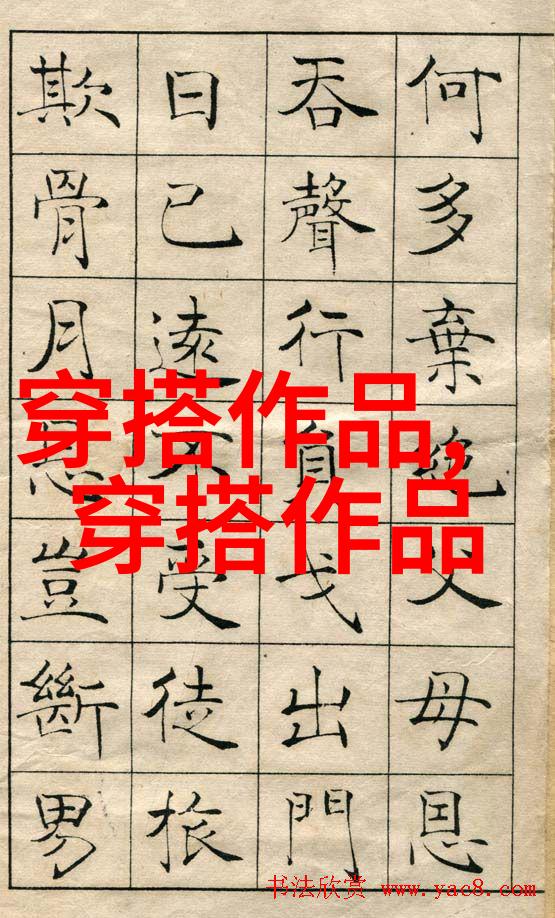 何多棄絕父母恩
吞聲行負戈出門
日已遠不受徒旅
欺骨月恩豈斷男
穿搭作品,
穿搭作品
书法欣赏 www.yac8.com